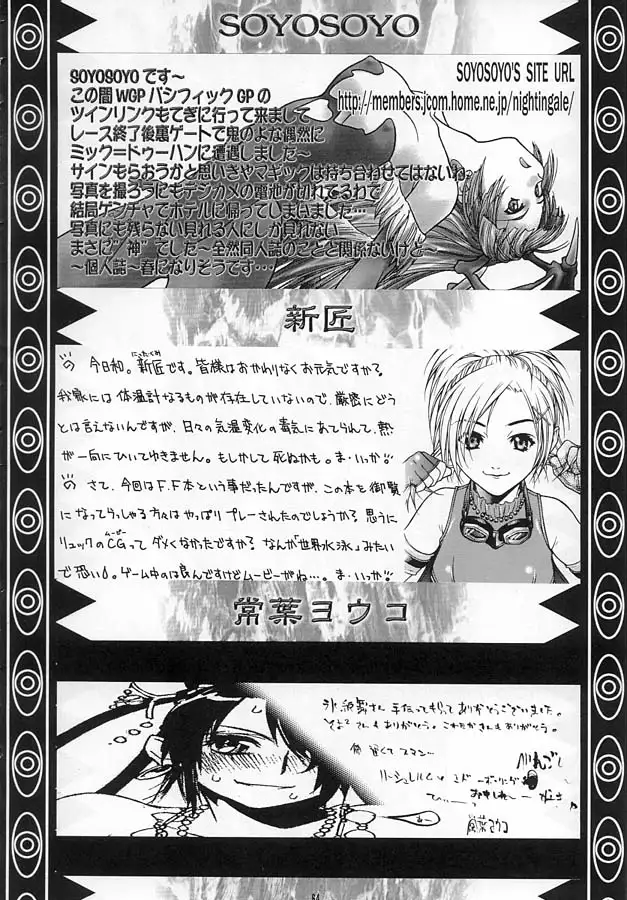 SOYOSOYO
SOYOSOYOです～
この間WGPパシフィックGPの
ツインリンクもてぎに行って来まして
レース終了後裏ゲートで鬼のよな偶然に
ミック=ドゥーハンに遭遇しました～
サインもらおうかと思いきやマギックは持ち合わせてはないね。
写真を撮ろうにもデジカメの電池が切れてるわで
結局ゲンチャでホテルに帰ってしまいました…
写真にも残らない見れる人にしか見れない
まさに"神"でした～全然同人誌のことと関係ないけど
～個人誌～春になりそうです…
SOYOSOYO'S SITE URL
http://members.jcom.home.ne.jp/nightingale/
新匠
今日和。新匠です。皆様はおかわりなくお元気ですか？
にったくみ
我家には体温計なるものが存在していないので、厳密にどう
とは言えないんですが、日々の気温変化の毒気にあてられて、熱
が一向にひいてゆきません。もしかして死ぬかも。ま・いっか!!
さて、今回はF.F本という事だったんですが、この本を御覧
になってらっしゃる方々はやっぱりプレーされたのでしょうか？思うに
リュックのCGってダメくなかったですか？なんか「世界水泳」みたい
ムービー
で恐い♪。ゲーム中のは良んですけどムービーがね…。ま・いっか!!
常葉ヨウコ
手伝ってもらってありがとうございました。
もありがとう。これたかさんもありがとう。
遅くてスマン…
64